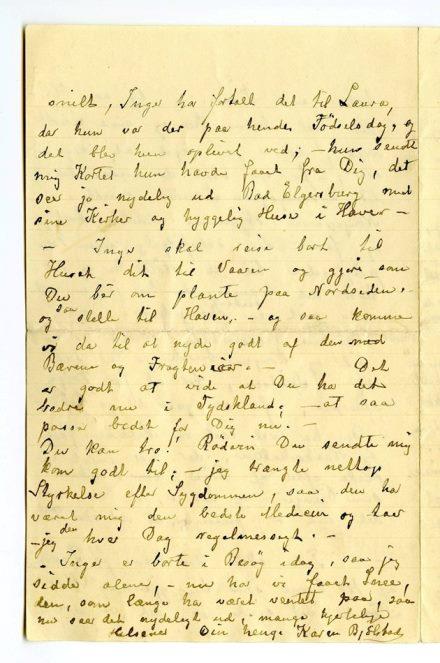 snilt, Inger har fortalt det til Laura,
da hun var der paa hendes Fødselsdag, og
det blev hun oplivet ved; – hun sendte
mig Kortet hun havde faaet fra Dig, det
ser jo nydelig ud Bad Elgersburg med
sine Kirker og hyggelig Huse i Haver –
– Inger skal reise bort til
Huset dit til Vaaren og gjøre som
Du bér om plante paa Nordsiden. –
og saa stelle til Haven; – og saa komme
vi da til at nyde godt af den med
Bærene og Frugten – Det
er godt at vide at Du ha det
bedre nu i Tydskland; – at saa
passer bedst for Dig nu. –
Du kan tro! Rødvin Du sendte mig
kom godt til; – jeg trængte nettop
Styrkelse efter Sygdommen, saa den har
været mig den bedste Medecin og tar
– jeg den hver Dag regelmessegt. –
– Inger er borte i Besøg idag, saa jeg
sidder alene, – nu har vi faaet Snee,
den, som længe ha været ventet paa, saa
nu ser det nydeligt ud, mange hjertelige
Helsener Din henge Karen